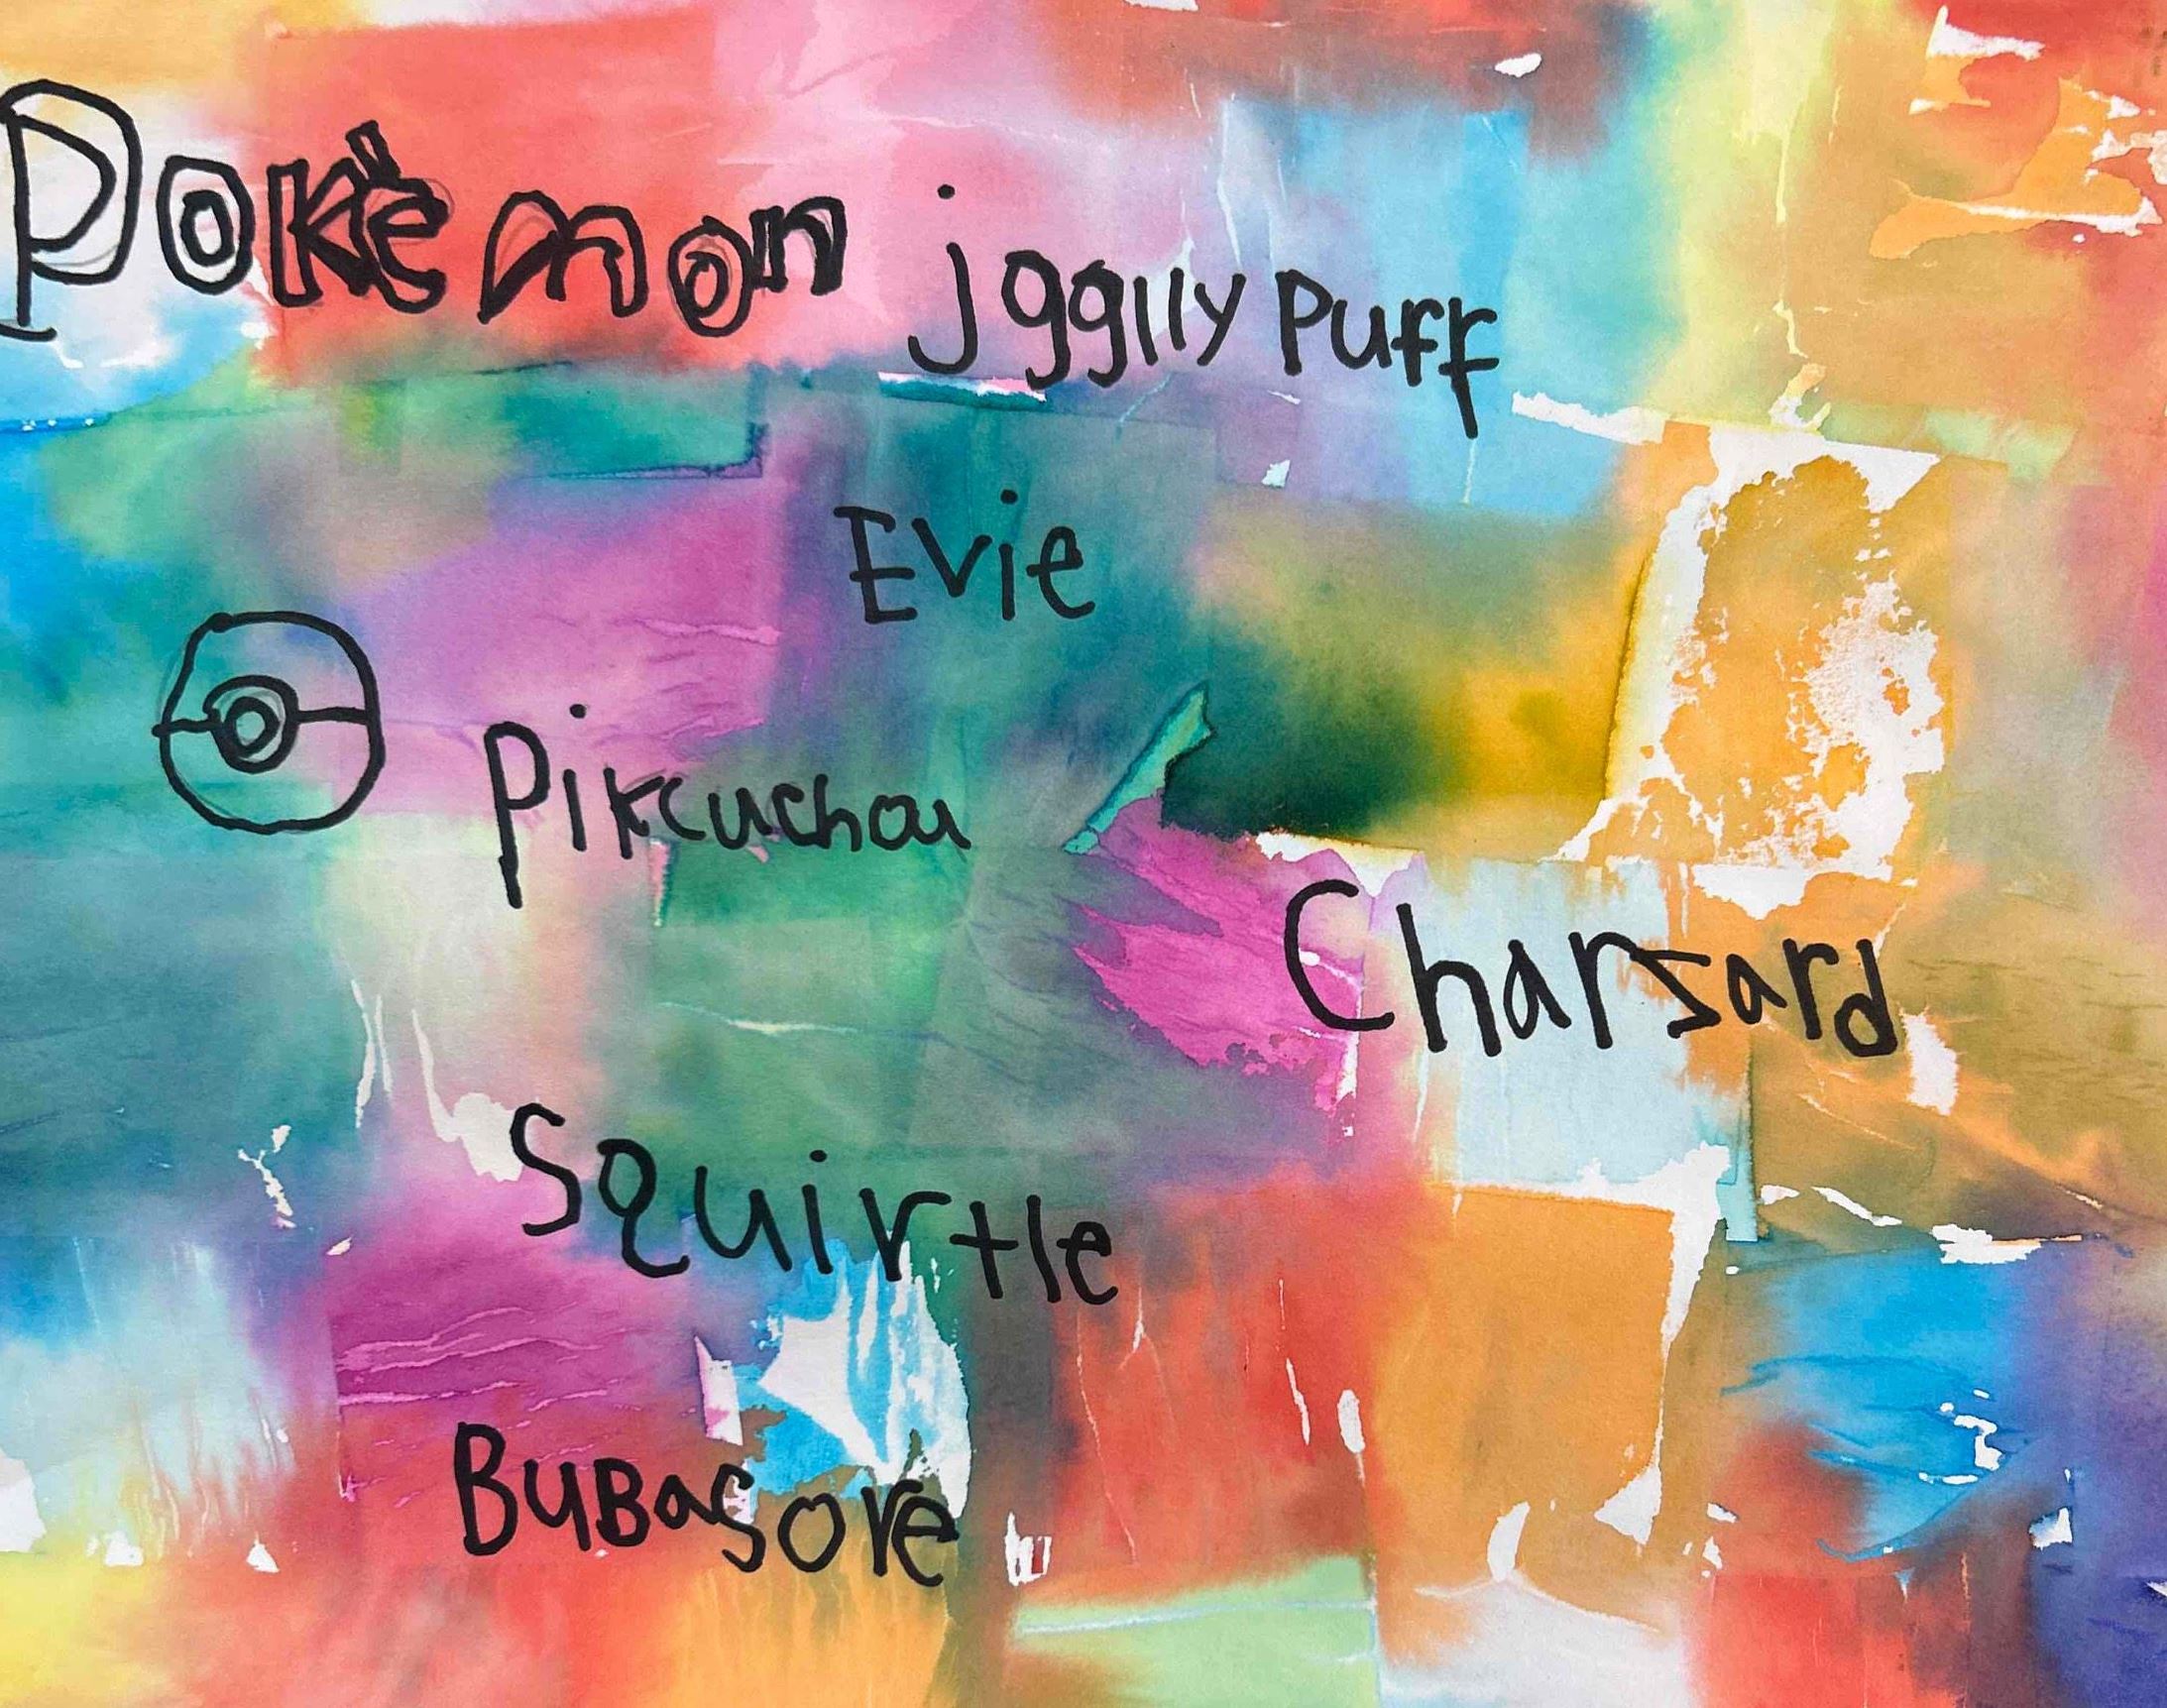 Pokémon
jgglly Puff
Evie
Pikcuchou
Charsard
Squirtle
BuBasore